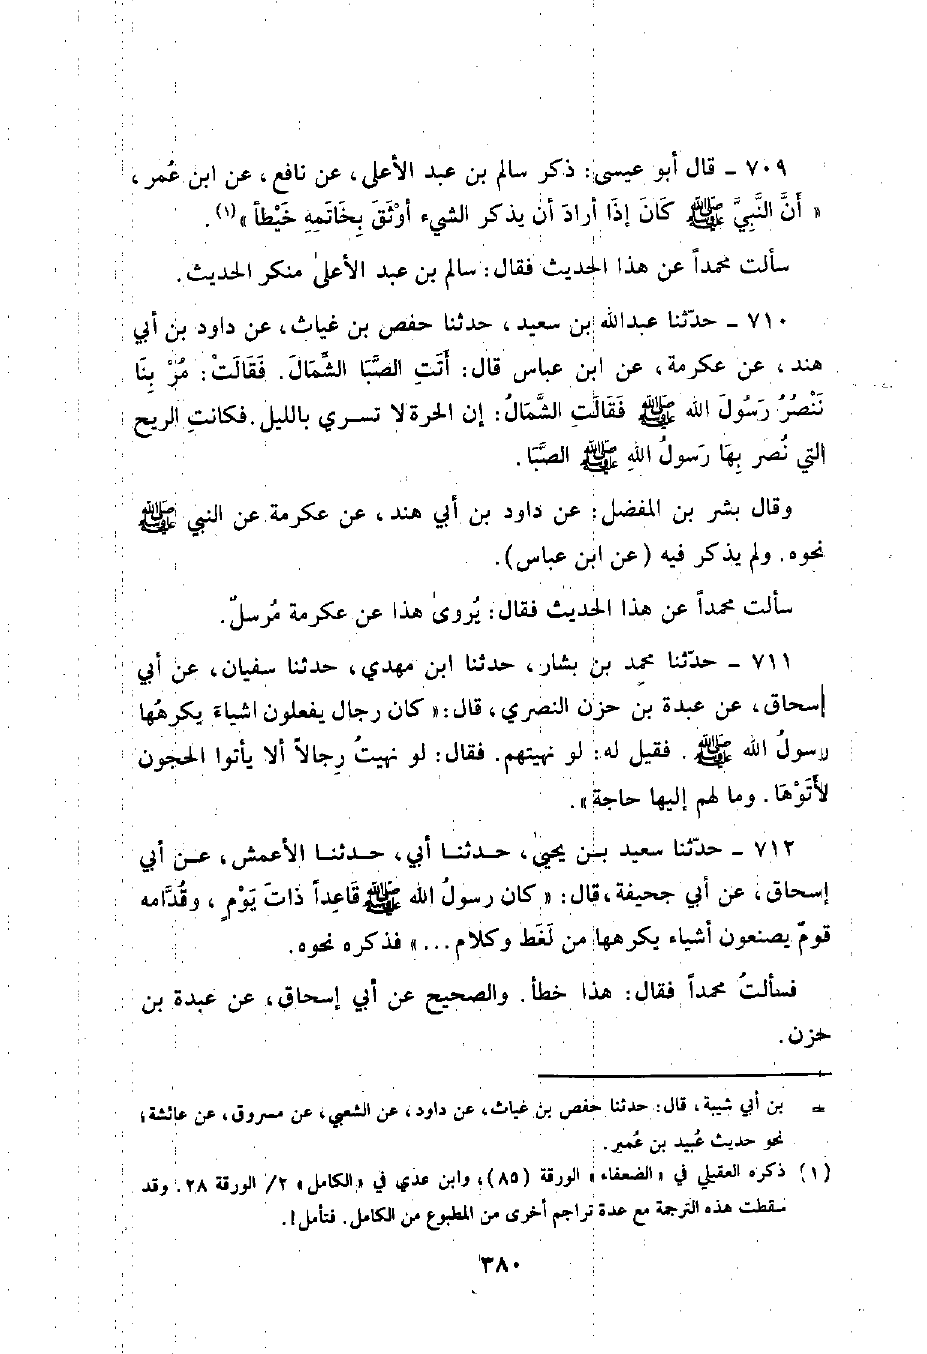 ٧٠٩ - قال أبو عيسى: ذكر سالم بن عبد الأعلى، عن نافع، عن ابن عُمر،
« أَنَّ النَّبِيَّ ﷺ كَانَ إِذَا أرادَ أن يذكر الشيء أوْثَقَ بِخَاتَمِهِ خَيْطاً»(١).
سألت محمداً عن هذا الحديث فقال: سالم بن عبد الأعلىٰ منكر الحديث.
٧١٠ - حدّثنا عبدالله بن سعيد، حدثنا حفص بن غياث، عن داود بن أبي
هند، عن عكرمة، عن ابن عباس قال: أَتَتِ الصَّبَا الشَّمَالَ. فَقَالَتْ: مُرّْ بِنَا
نَنْصُرُ رَسُولَ الله ﷺ فَقَالَتِ الشَّمَالُ: إن الحرة لا تسري بالليل. فكانتِ الريح
التي نُصر بِهَا رَسولُ اللهِ ﷺ الصَّبَا.
وقال بشر بن المفضل: عن داود بن أبي هند، عن عكرمة عن النبي ﷺ
نحوه. ولم يذكر فيه (عن ابن عباس).
سألت محمداً عن هذا الحديث فقال: يُروىٰ هذا عن عكرمة مُرسلٌ.
٧١١ - حدّثنا محمد بن بشار، حدثنا ابن مهدي، حدثنا سفيان، عن أبي
إسحاق، عن عبدة بن حزن النصري، قال: « كان رجال يفعلون اشياءَ يكرهُها
رسولُ الله ﷺ. فقيل له: لو نهيتهم. فقال: لو نهيتُ رِجالاً ألا يأتوا الحجون
لأَتَوْهَا. وما لهم إليها حاجة».
٧١٢ - حدّثنا سعيد بن يحيىٰ، حدثنا أبي، حدثنا الأعمش، عن أبي
إسحاق، عن أبي جحيفة، قال: « كان رسولُ الله ﷺ قَاعِداً ذاتَ يَوْمٍ، وقُدَّامه
قومٌ يصنعون أشياء يكرهها من لَغَط وكلام...» فذكره نحوه.
فسألتُ محمداً فقال: هذا خطأ. والصحيح عن أبي إسحاق، عن عبدة بن
حزن.
= بن أبي شيبة، قال: حدثنا حفص بن غياث، عن داود، عن الشعبي، عن مسروق، عن عائشة،
نحو حديث عُبيد بن عُمير.
(١) ذكره العقيلي في «الضعفاء» الورقة (٨٥)، وابن عدي في «الكامل» ٢/ الورقة ٢٨. وقد
سقطت هذه الترجمة مع عدة تراجم أخرى من المطبوع من الكامل. فتأمل!.
٣٨٠